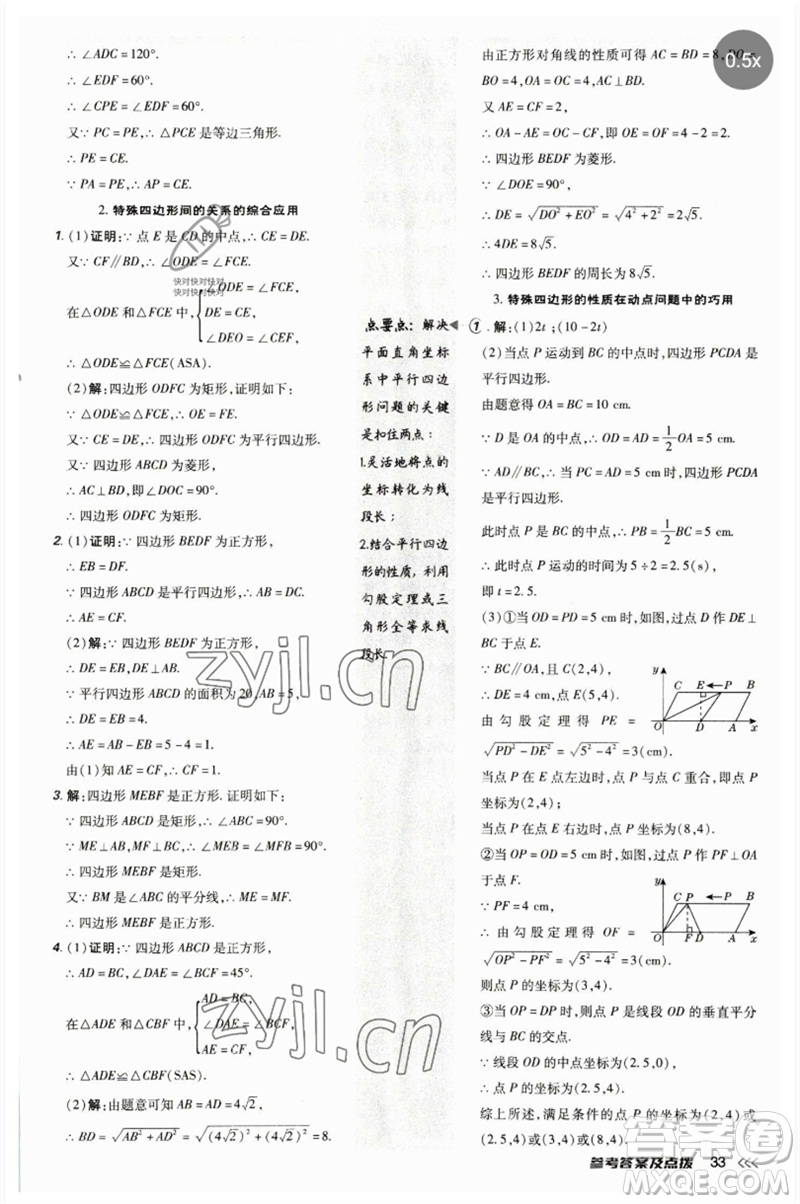 ∴ ∠ADC = 120°.
∴ ∠EDF = 60°.
∴ ∠CPE = ∠EDF = 60°.
又∵ PC = PE, ∴ △PCE 是等边三角形.
∴ PE = CE.
∵ PA = PE, ∴ AP = CE.
2. 特殊四边形间的关系的综合应用
1. (1)证明:∵ 点 E 是 CD 的中点, ∴ CE = DE.
又∵ CF∥BD, ∴ ∠ODE = ∠FCE.
在 △ODE 和 △FCE 中, {∠ODE = ∠FCE,
DE = CE,
∠DEO = ∠CEF,
∴ △ODE ≌ △FCE(ASA).
(2)解:四边形 ODFC 为矩形, 证明如下:
∵ △ODE ≌ △FCE, ∴ OE = FE.
又∵ CE = DE, ∴ 四边形 ODFC 为平行四边形.
又∵ 四边形 ABCD 为菱形,
∴ AC⊥BD, 即∠DOC = 90°.
∴ 四边形 ODFC 为矩形.
2. (1)证明:∵ 四边形 BEDF 为正方形,
∴ EB = DF.
∵ 四边形 ABCD 是平行四边形, ∴ AB = DC.
∴ AE = CF.
(2)解:∵ 四边形 BEDF 为正方形,
∴ DE = EB, DE⊥AB.
∵ 平行四边形 ABCD 的面积为 20, AB = 5,
∴ DE = EB = 4.
∴ AE = AB − EB = 5 − 4 = 1.
由(1)知 AE = CF, ∴ CF = 1.
3. 解:四边形 MEBF 是正方形. 证明如下:
∵ 四边形 ABCD 是矩形, ∴ ∠ABC = 90°.
∵ ME⊥AB, MF⊥BC, ∴ ∠MEB = ∠MFB = 90°.
∴ 四边形 MEBF 是矩形.
又∵ BM 是∠ABC 的平分线, ∴ ME = MF.
∴ 四边形 MEBF 是正方形.
4. (1)证明:∵ 四边形 ABCD 是正方形,
∴ AD = BC, ∠DAE = ∠BCF = 45°.
在 △ADE 和 △CBF 中, {AD = BC,
∠DAE = ∠BCF,
AE = CF,
∴ △ADE ≌ △CBF(SAS).
(2)解:由题意可知 AB = AD = 4√2,
∴ BD = √(AB² + AD²) = √((4√2)² + (4√2)²) = 8.
快对快对快对
快对快对快对
点要点: 解决
平面直角坐标
系中平行四边
形问题的关键
是扣住两点:
1.灵活地将点的
坐标转化为线
段长;
2.结合平行四边
形的性质, 利用
勾股定理或三
角形全等求线
段长.
由正方形对角线的性质可得 AC = BD = 8, DO =
BO = 4, OA = OC = 4.
又∵ AE = CF = 2,
∴ OA − AE = OC − CF, 即 OE = OF = 4 − 2 = 2.
∴ 四边形 BEDF 为菱形.
∵ ∠DOE = 90°,
∴ DE = √(DO² + EO²) = √(4² + 2²) = 2√5.
∴ 4DE = 8√5.
∴ 四边形 BEDF 的周长为 8√5.
3. 特殊四边形的性质在动点问题中的巧用
1. 解:(1)2t ;(10 − 2t)
(2)当点 P 运动到 BC 的中点时, 四边形 PCDA 是
平行四边形.
由题意得 OA = BC = 10 cm.
∵ D 是 OA 的中点, ∴ OD = AD = 1/2 OA = 5 cm.
∵ PC∥AD, ∴ 当 PC = AD = 5 cm 时, 四边形 PCDA
是平行四边形.
此时点 P 是 BC 的中点, ∴ PB = 1/2 BC = 5 cm.
∴ 此时点 P 运动的时间为 5 ÷ 2 = 2.5(s),
即 t = 2.5.
(3)①当 OD = PD = 5 cm 时, 如图, 过点 D 作 DE⊥
BC 于点 E.
∵ BC∥OA, C(2,4),
∴ DE = 4 cm, E(5,4).
由勾股定理得 PE =
√(PD² − DE²) = √(5² − 4²) = 3(cm).
y C E P B O D A x
当点 P 在 E 点左边时, 点 P 与点 C 重合, 即点 P
坐标为(2,4);
当点 P 在 E 点右边时, 点 P 坐标为(8,4).
②当 OP = OD = 5 cm 时, 如图, 过点 P 作 PF⊥OA
于点 F.
∵ PF = 4 cm,
∴ 由勾股定理得 OF =
√(OP² − PF²) = √(5² − 4²) = 3(cm).
y C P B O F D A x
则点 P 的坐标为(3,4).
③当 OP = DP 时, 则点 P 是线段 OD 的垂直平分
线与 BC 的交点.
∵ 线段 OD 的中点坐标为(2.5,0),
∴ 点 P 的坐标为(2.5,4).
综上所述, 满足条件的点 P 的坐标为(2,4)或
(2.5,4)或(3,4)或(8,4).
参考答案及点拨 33
0.5x
zyjl.cn
zyjl.cn
答案圈